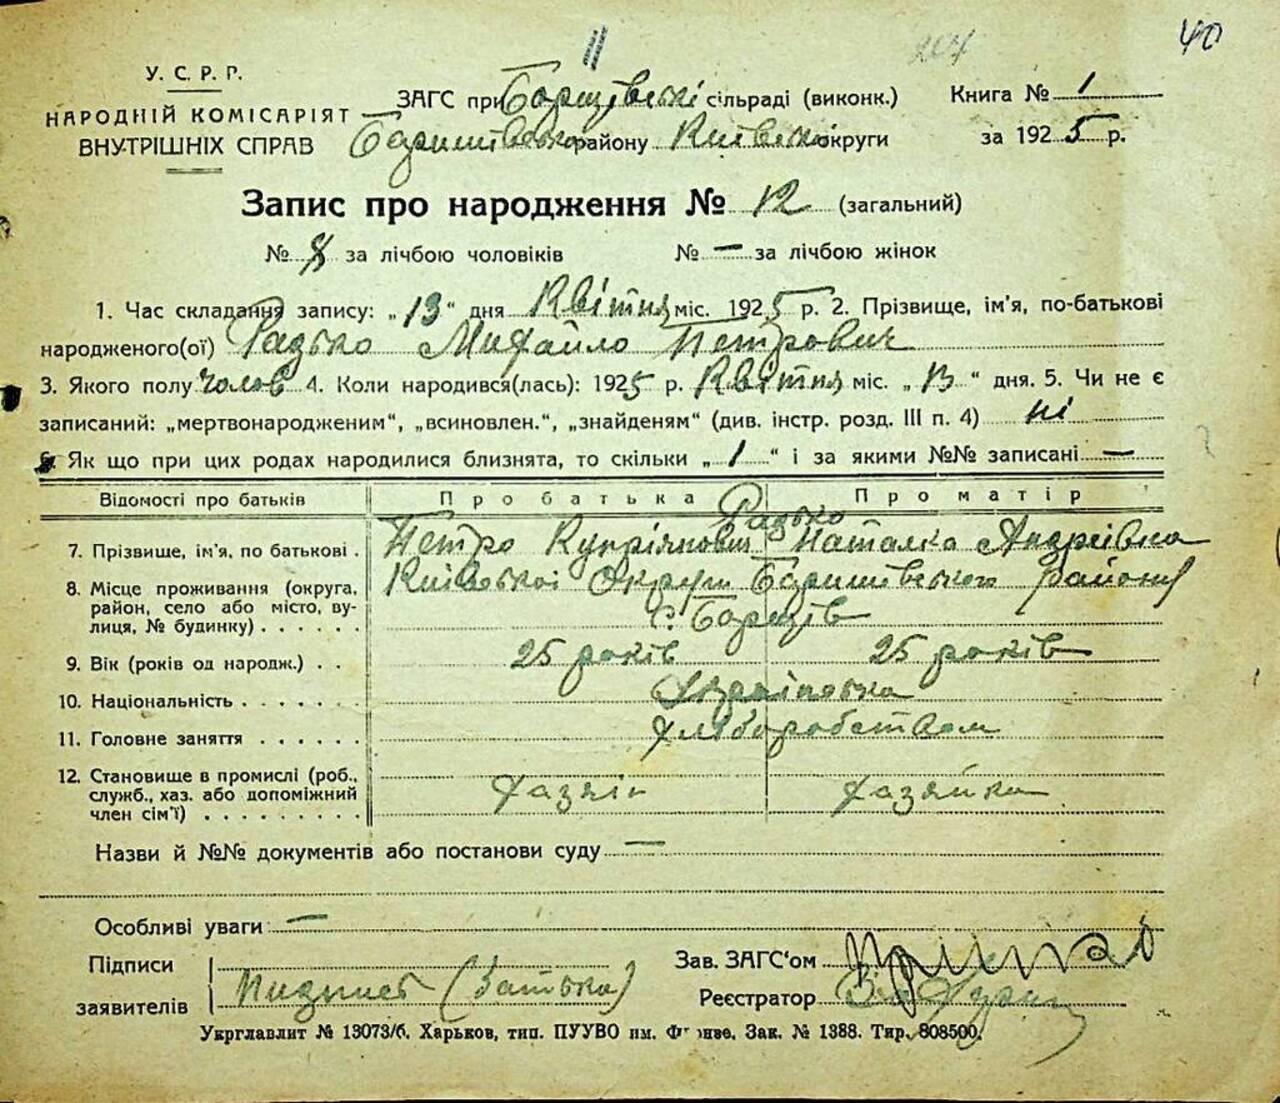 11
204
40
У. С. Р. Р.
НАРОДНІЙ КОМІСАРІЯТ
ВНУТРІШНІХ СПРАВ
ЗАГС при Борщівські сільраді (виконк.)
Баришівсько району Київсько округи
Книга № 1
за 1925 р.
Запис про народження № 12 (загальний)
№ 8 за лічбою чоловіків № — за лічбою жінок
1. Час складання запису: „13“ дня Квітня міс. 1925 р. 2. Прізвище, ім'я, по-батькові
народженого(ої) Радько Михайло Петрович
3. Якого полу чолов 4. Коли народився(лась): 1925 р. Квітня міс. „13“ дня. 5. Чи не є
записаний: „мертвонародженим“, „всиновлен.“, „знайденям“ (див. інстр. розд. III п. 4) ні
6. Як що при цих родах народилися близнята, то скільки „1“ і за якими №№ записані —
Відомості про батьків Про батька Про матір
Радько
7. Прізвище, ім'я, по батькові . Петро Купріянович Наталка Андріївна
8. Місце проживання (округа, район, село або місто, вулиця, № будинку) . . . . . . Київської Округи Баришівського району
с. Борщів
9. Вік (років од народж.) . . 25 років 25 років
10. Національність . . . . . . . Українська
11. Головне заняття . . . . . . Хліборобством
12. Становище в промислі (роб., служб., хаз. або допоміжний член сім'ї) . . . . . . . . . Хазяїн Хазяйка
Назви й №№ документів або постанови суду —
Особливі уваги —
Підписи
заявителів (батька)
Зав. ЗАГС'ом
Реєстратор
Укрглавлит № 13073/б. Харьков, тип. ПУУВО им. Фрунзе. Зак. № 1388. Тир. 808500.